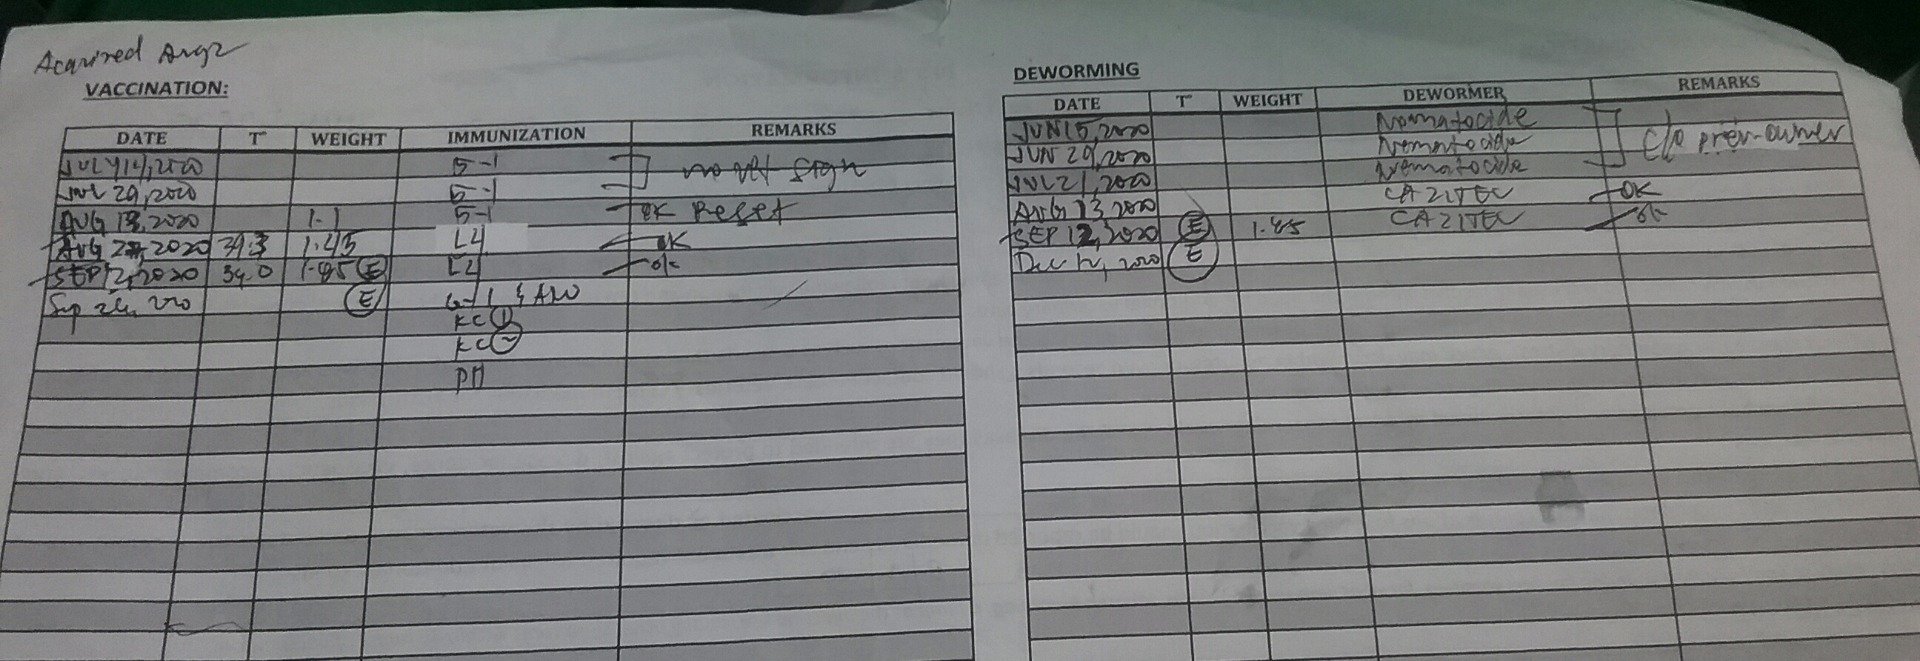 Acquired Aug 2
VACCINATION:
DATE T° WEIGHT IMMUNIZATION REMARKS
JULY 14, 2020 5-1 no vet sign
JUL 29, 2020 5-1
AUG 13, 2020 1.1 5-1 OK Reset
AUG 2 2020 39.3 1.45 L4 OK
SEP 12, 2020 39.0 1.85 E L4 ok
Sep 26, 2020 E 6-1 &
KC 1
KC 2
DEWORMING
DATE T° WEIGHT DEWORMER REMARKS
JUN 15, 2020 Nematocide c/o prev-owner
JUN 29, 2020 Nematocide
JUL 21, 2020 Nematocide
AUG 13, 2020 CAZITEC OK
SEP 12, 2020 E 1.85 CAZITEC ok
Dec 12, 2020 E